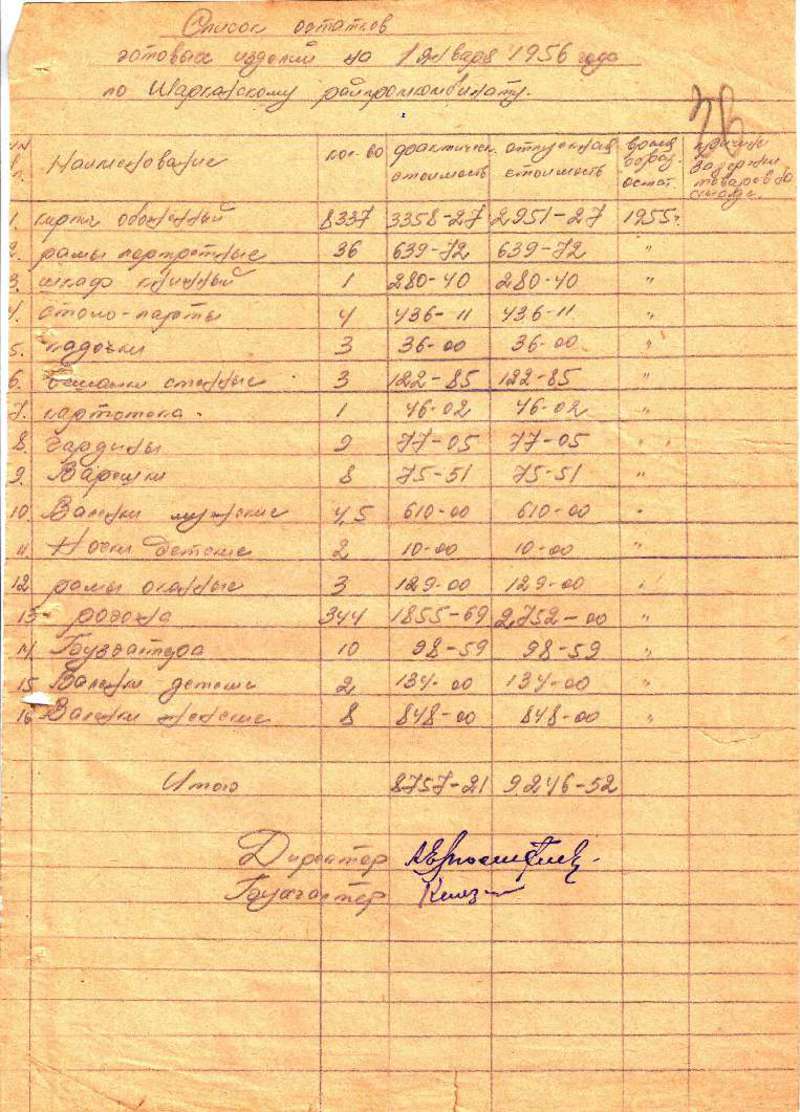 Список остатков
готовых изделий на 1 января 1956 года
по Шарканскому райпромкомбинату.
№№ п.п. Наименование кол-во фактическ. стоимость отпускная стоимость время образ. остат. причины задержки товаров на складе.
1. кирпич обожжённый 8337 3358-27 2951-27 1955г.
2. рамы портретные 36 639-72 639-72 "
3. шкаф книжный 1 280-40 280-40 "
4. столо-парты 4 436-11 436-11 "
5. кадочки 3 36-00 36-00 "
6. стенные 3 122-85 122-85 "
7. картотека 1 46-02 46-02 "
8. Гардины 9 77-05 77-05 "
9. Варешки 8 75-51 75-51 "
10. Валенки мужские 4,5 610-00 610-00 "
11. Носки детские 2 10-00 10-00 "
12 рамы оконные 3 129-00 129-00 "
13 рогожа 344 1855-69 2752-00 "
14 10 98-59 98-59 "
15 Валенки детские 2 134-00 134-00 "
16 Валенки женские 8 848-00 848-00 "
Итого 8757-21 9246-52
Директор
Бухгалтер